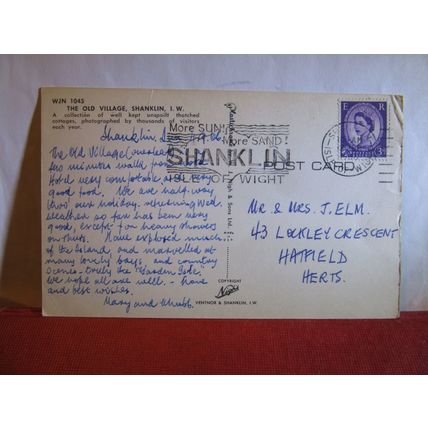 WJN 1045
THE OLD VILLAGE, SHANKLIN, I. W.
A collection of well kept unspoilt thatched
cottages, photographed by thousands of visitors
each year.
Shanklin,
The Old Village (overleaf)
few minutes walk from
Hotel very comfortable and very
good food. We are half-way
our holiday, returning Wed.
Weather so far has been very
good, except for heavy showers
on Thurs. Have explored much
of the Island and marvelled at
many lovely bays, and country
scenes - truly the "Garden Isle".
We hope all are well. - love
and best wishes.
Mary and
More SUN!
More SAND!
SHANKLIN
ISLE OF WIGHT
POST CARD
E R
3D
& Sons Ltd.
COPYRIGHT
Nigh
VENTNOR & SHANKLIN, I.W.
MR & MRS. J. ELM.
43 LOCKLEY CRESCENT
HATFIELD
HERTS.